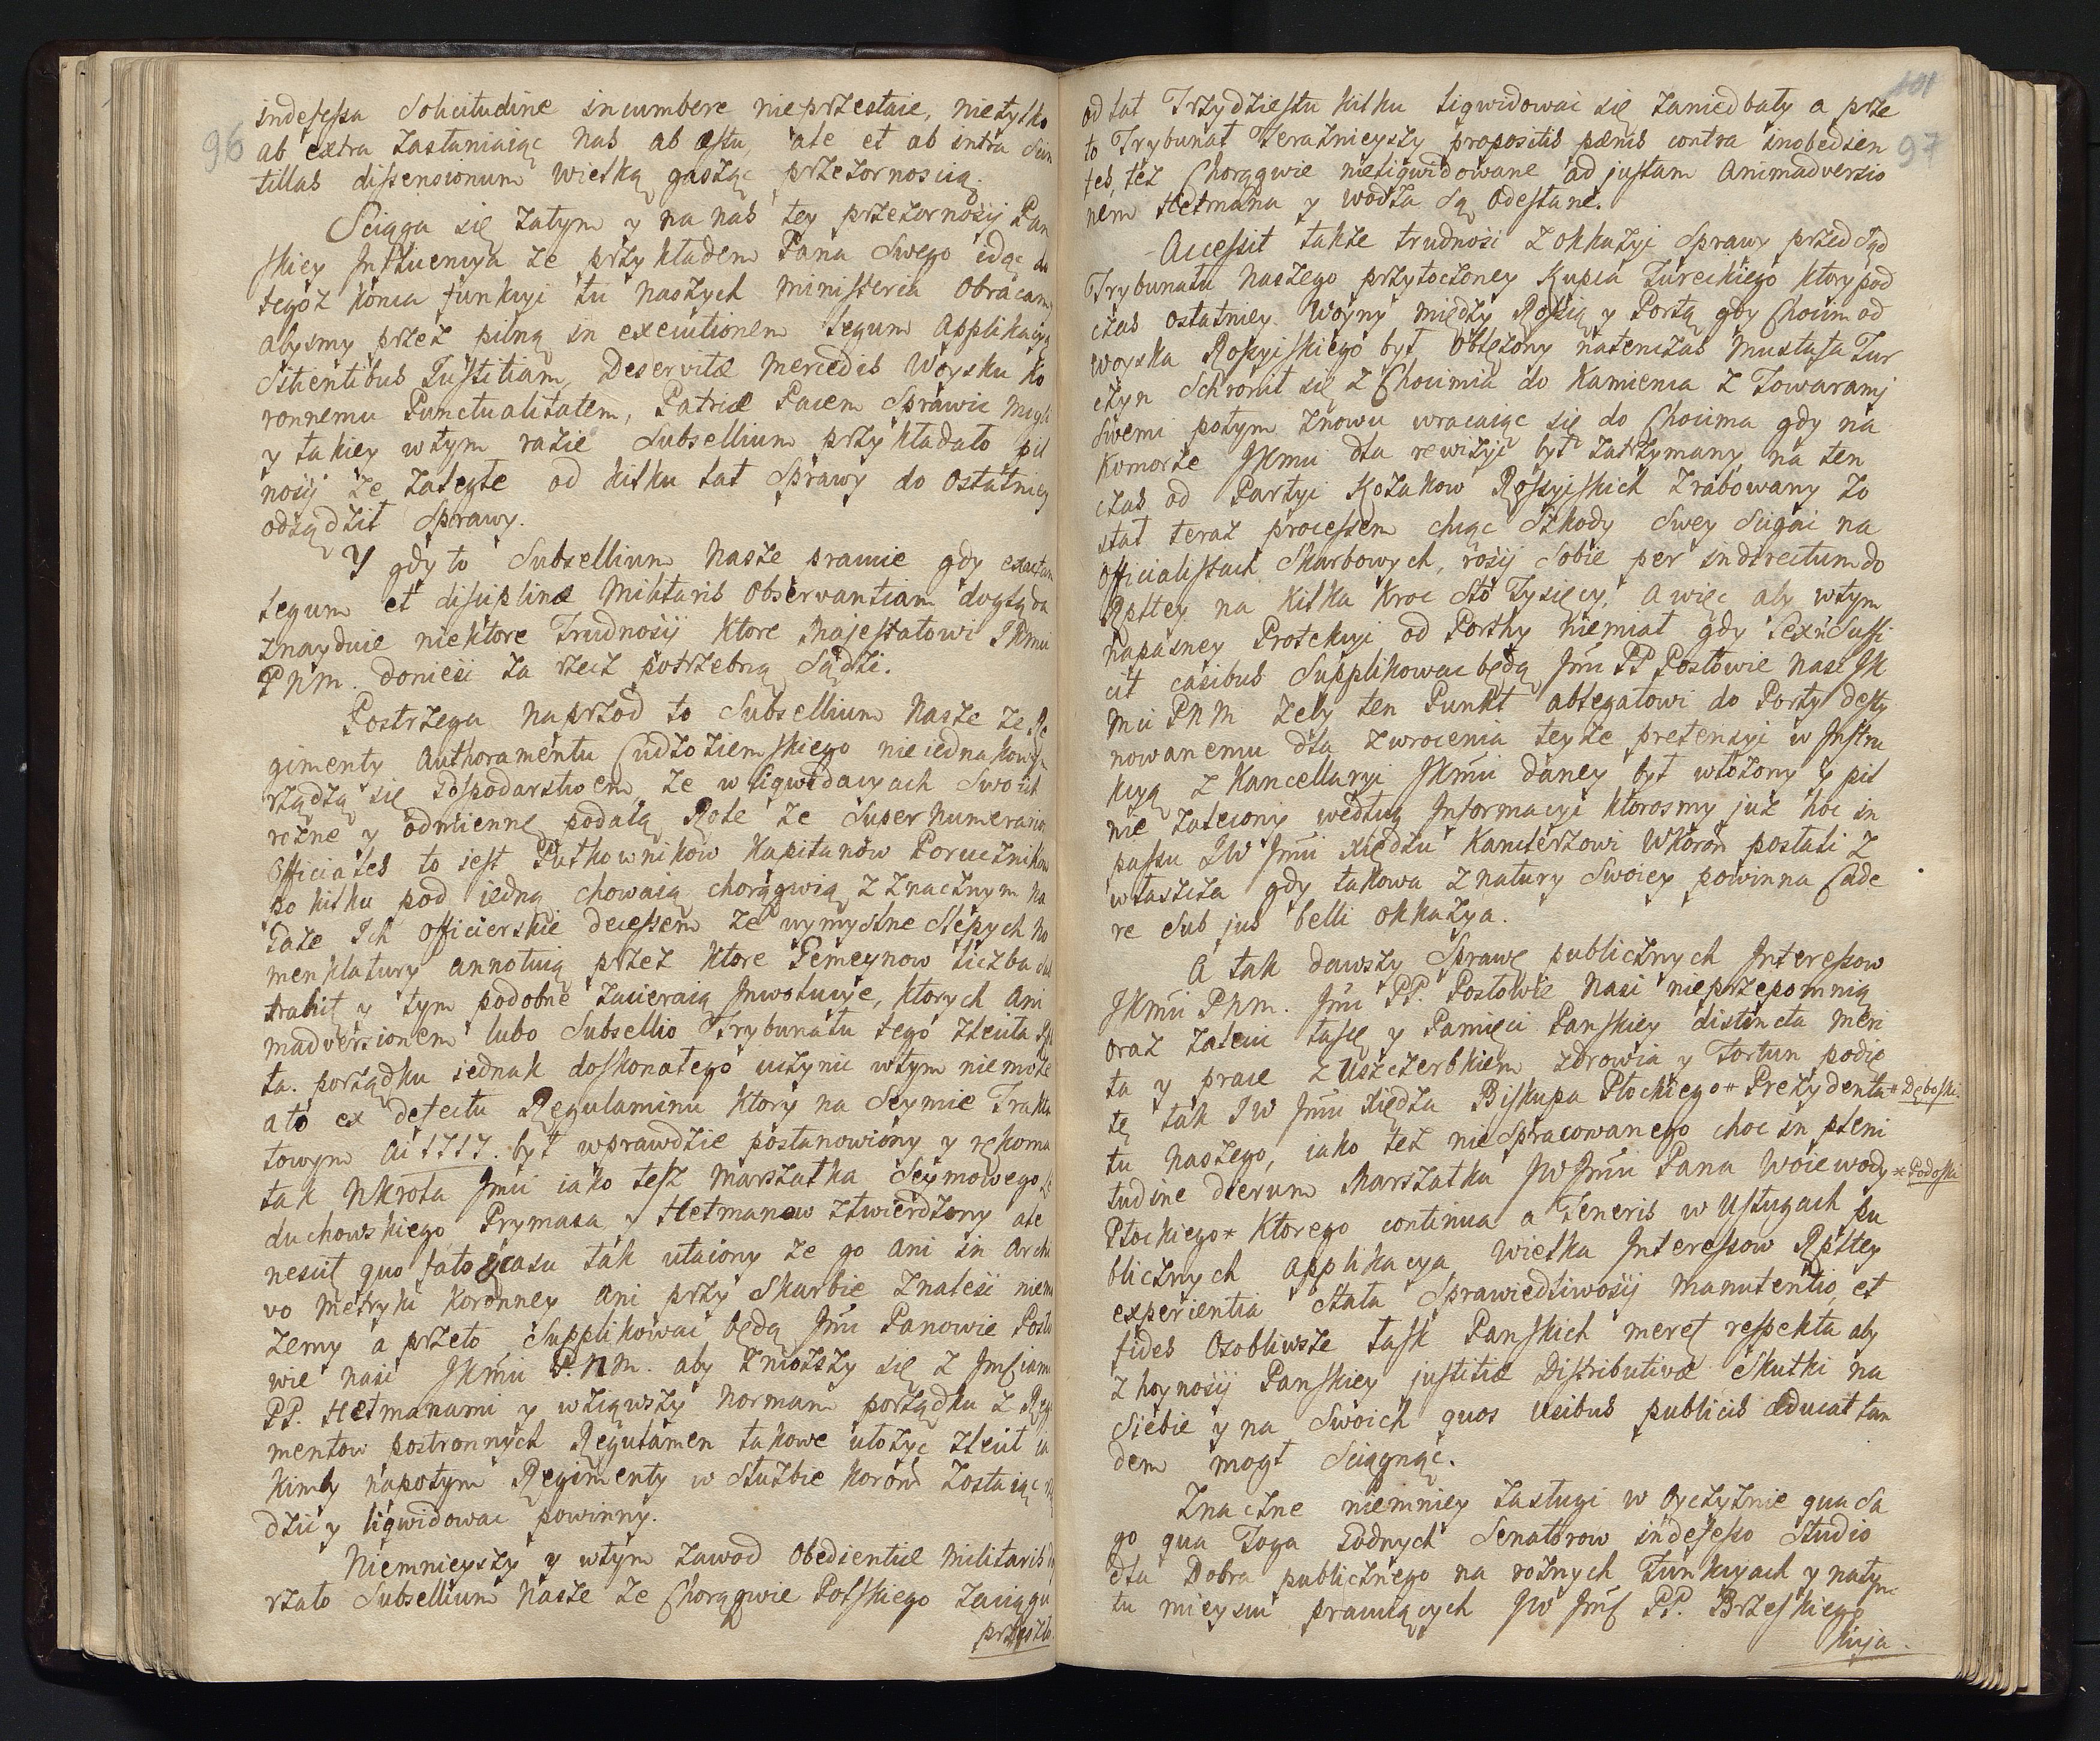 96
indefessa Solicitudine incumbere nieprzestaie, nietylko
ab extra zasłaniaiąc nas ab æstu, ale et ab intra Scin
tillas dissensionum wielką gasząc przezornoscią.
Sciąga się zatym y na nas tey przezornosij Pan
skiey Influencya ze przykładem Pana Swego idąc do
tegoz konca funkcyi tu naszych ministeria obracamy
abysmy przez pilną in executionem legum Applikacyą
Sitientibus Justitiam, Deservitæ Mercedis Woysku Ko
ronnemu Punctualitatem, Patriæ Pacem Sprawic mogli
y takiey wtym razie Subsellium przykładało pil
nosij ze zaległe od kilku lat Sprawy do Ostatniey
odsądził Sprawy.
Y gdy to Subsellium Nasze pracuie gdy exactam
legum et disciplinæ Militaris Observantiam dogląda
znayduie niektore Trudnosij ktore Majestatowi JKmci
PNM. doniesc za rzecz potrzebną Sądzi.
Postrzega naprzod to Subsellium Nasze ze Re
gimenty Authoramentu Cudzoziemskiego nieiednakowym
rządzą się Gospodarstwem ze w liqwidacyach Swoich
rozne y odmienne podaią Role ze Supernumerarios
Officiales to iest Pułkownikow Kapitanow Porucznikow
po kilku pod iedną chowaią chorągwią z znacznym na
Gaze Ich Officierskie decessem ze wymyslne Slepych No
menklatury annotuią przez ktore Gemeynow liczba de
trahit y tym podobne zawieraią Inwolucye, ktorych Ani
madversionem lubo Subsellio Trybunału tego zleciła Rptt
ta. porządku iednak doskonałego uczynic wtym niemoze
a to ex defectu Regulaminu ktory na Seymie Trakta
towym Ai 1717. był wprawdzie postanowiony y rękoma
tak NKrola Jmci iako tesz Marszałka Seymowego Le
duchowskiego Prymasa y Hetmanow ztwierdzony ale
nescit quo fato casu tak utaiony ze go Ani in Archi
vo Metryki Koronney Ani przy Skarbie znalesc niemo
zemy a przeto Supplikowac będą Jmci Panowie Posło
wie nasi JKmci P.N.M. aby zniozszy się z Jmciami
PP. Hetmanami y wziąwszy Normam porządku z Regi
mentow postronnych Regulamen takowe ułozyc zlecił ia
kimby napotym Regimenty w Sluzbie Koronn zostaiąc rzą
dzic y liqwidowac powinny.
Niemnieyszy y wtym zawod Obedientiæ Militaris
rzało Subsellium Nasze ze Chorągwie Polskiego zaciągu
przeszło
101
97
od lat Trzydziestu kilku liqwidowac się zaniedbały a prze
to Trybunał Teraznieyszy propositis pænis contra inobedien
tes, tez Chorągwie nieliqwidowane ad justam Animadversio
nem Hetmana y wodza Są Odesłane.
Accessit takze trudnosc z okkazyi Sprawy przed Sąd
Trybunału Naszego przytoczoney Kupca Tureckiego ktory pod
czas ostatniey Woyny między Rossią y Portą gdy Chocim od
woyska Rossyiskiego był oblęzony natenczas Mustafa Tur
czyn Schronił się z Chocimia do Kamienca z Towarami
Swemi potym znowu wracaiąc się do Chocima gdy na
Komorze JKmci dla rewizyi był zatrzymany na ten
czas od Partyi Kozakow Rossyiskich zrabowany zo
stał teraz processem chcąc Szkody Swey Scigac na
Officialistach Skarbowych, rosij Sobie per indirectum do
Rpltey na kilka kroc Sto Tysięcy, a więc aby wtym
napasney Protekcyi od Porthy niemiał gdy Lex n Suffi
cit casibus Supplikowac będą Jmci PP Posłowie nasi JK
Mci PNM zeby ten Punkt ablegatowi do Porty desty
nowanemu dla zwrocenia teyze pretensyi w Instru
kcyą z Kancellaryi JKmci daney był włozony y pil
nie zalecony według Informacyi ktorosmy juz hoc in
passu JW Jmci Xiędzu Kanclerzowi WKoron posłali z
własscza gdy takowa z natury Swoiey powinna Cade
re Sub jus belli okkazya.
A tak dawszy Sprawę publicznych Interessow
JKmci PNM. Jmci PP. Posłowie Nasi nieprzepomnią
oraz zalecic łasce y Pamięci Panskiey distincta Meri
ta y prace z Uszczerbkiem zdrowia y Fortun podię
te tak JW Jmci Xiędza Biskupa Płockiego* Prezydenta *Dęboski.
tu Naszego, iako tez niespracowanego choc in pleni
tudine dierum Marszałka JW Jmci Pana Woiewody *Podoski
Płockiego* Ktorego continua a Teneris w Usługach pu
blicznych applikacya wielka Interessow Rpltey
experientia Stała Sprawiedliwosij Manutentio et
fides Osobliwsze łask Panskich meret respekta aby
z hoynosij Panskiey justitiæ Distributivæ Skutki na
Siebie y na Swoich quos Usibus publicis educat tan
dem mogł Sciągnąc.
Znaczne niemniey zasługi w Oyczyznie qua Sa
go qua Toga Godnych Senatorow indefesso Studio
dla Dobra publicznego na roznych Funkcyach y natym
tu mieyscu pracuiących JW Jmci PP. Brzeskiego
Kuja.